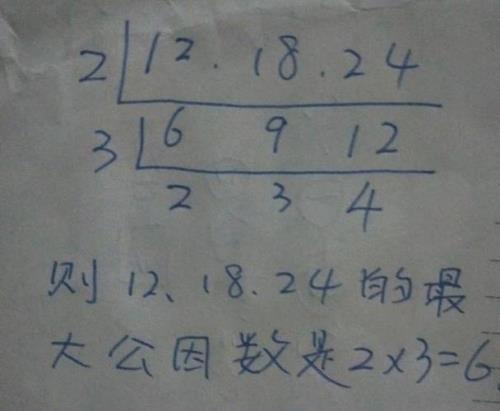 2 12.18.24
3 6 9 12
2 3 4
则12、18.24的最
大公因数是2×3=6